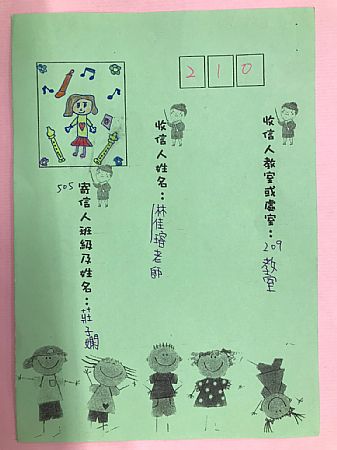 210
收信人教室或處室：209教室
收信人姓名：林佳瑢老師
寄信人班級及姓名：莊子嫻
505